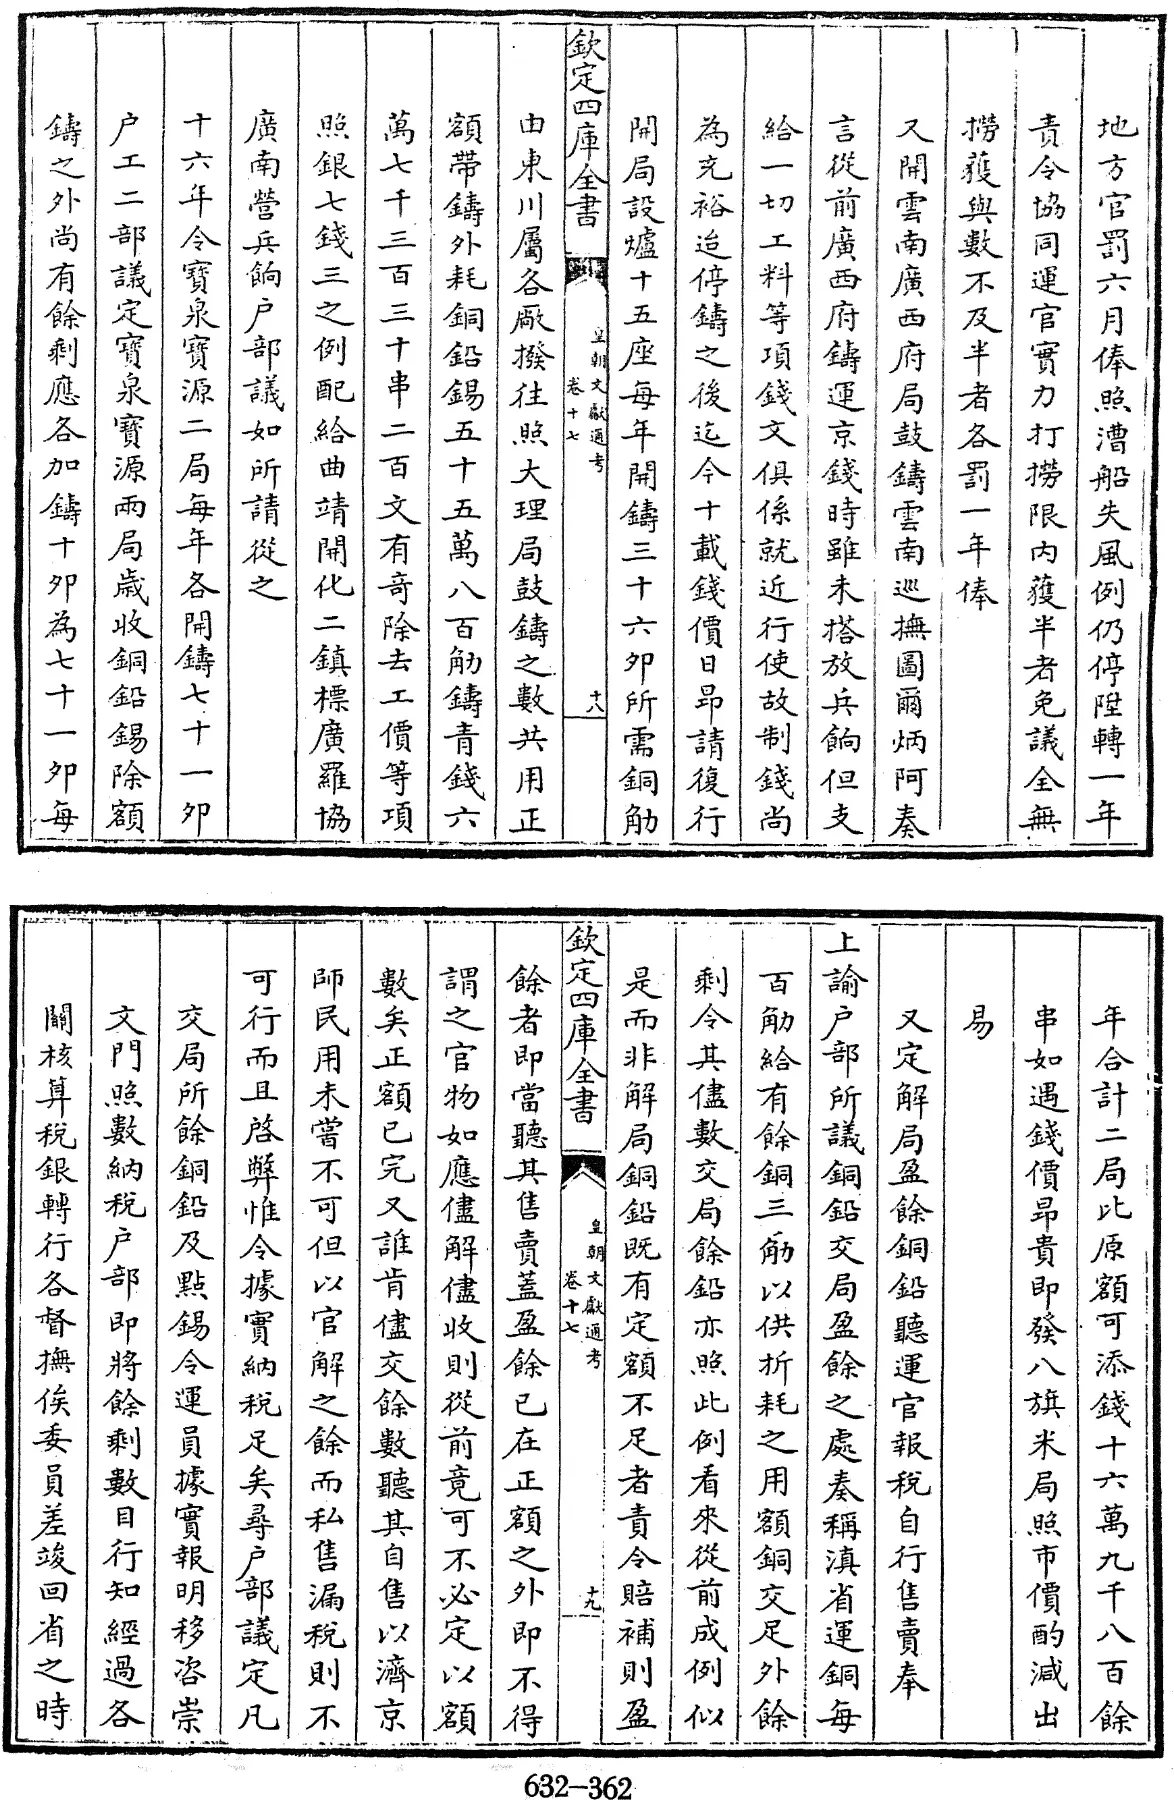 地方官罰六月俸照漕船失風例仍停陞轉一年
責令協同運官實力打撈限内獲半者免議全無
撈獲與數不及半者各罰一年俸
又開雲南廣西府局鼓鑄雲南巡撫圖爾炳阿奏
言從前廣西府鑄運京錢時雖未搭放兵餉但支
給一切工料等項錢文俱係就近行使故制錢尚
為充裕迨停鑄之後迄今十載錢價日昻請復行
開局設爐十五座每年開鑄三十六夘所需銅觔
欽定四庫全書
皇朝文獻通考
卷十七
十八
由東川屬各廠撥往照大理局鼓鑄之數共用正
額帶鑄外耗銅鉛錫五十五萬八百觔鑄青錢六
萬七千三百三十串二百文有奇除去工價等項
照銀七錢三之例配給曲靖開化二鎮標廣羅協
廣南營兵餉户部議如所請從之
十六年令寶泉寶源二局每年各開鑄七十一夘
户工二部議定寶泉寶源兩局歲收銅鉛錫除額
鑄之外尚有餘剩應各加鑄十夘為七十一夘每
年合計二局比原額可添錢十六萬九千八百餘
串如遇錢價昻貴即發八旗米局照市價酌減出
易
又定解局盈餘銅鉛聽運官報税自行售賣奉
上諭户部所議銅鉛交局盈餘之處奏稱滇省運銅每
百觔給有餘銅三觔以供折耗之用額銅交足外餘
剩令其儘數交局餘鉛亦照此例看來從前成例似
是而非解局銅鉛既有定額不足者責令賠補則盈
欽定四庫全書
皇朝文獻通考
卷十七
十九
餘者即當聽其售賣蓋盈餘已在正額之外即不得
謂之官物如應儘解儘收則從前竟可不必定以額
數矣正額已完又誰肯儘交餘數聽其自售以濟京
師民用未嘗不可但以官解之餘而私售漏税則不
可行而且啓弊惟令據實納税足矣尋户部議定凡
交局所餘銅鉛及點錫令運員據實報明移咨崇
文門照數納税户部即將餘剩數目行知經過各
關核算税銀轉行各督撫俟委員差竣回省之時
632-362